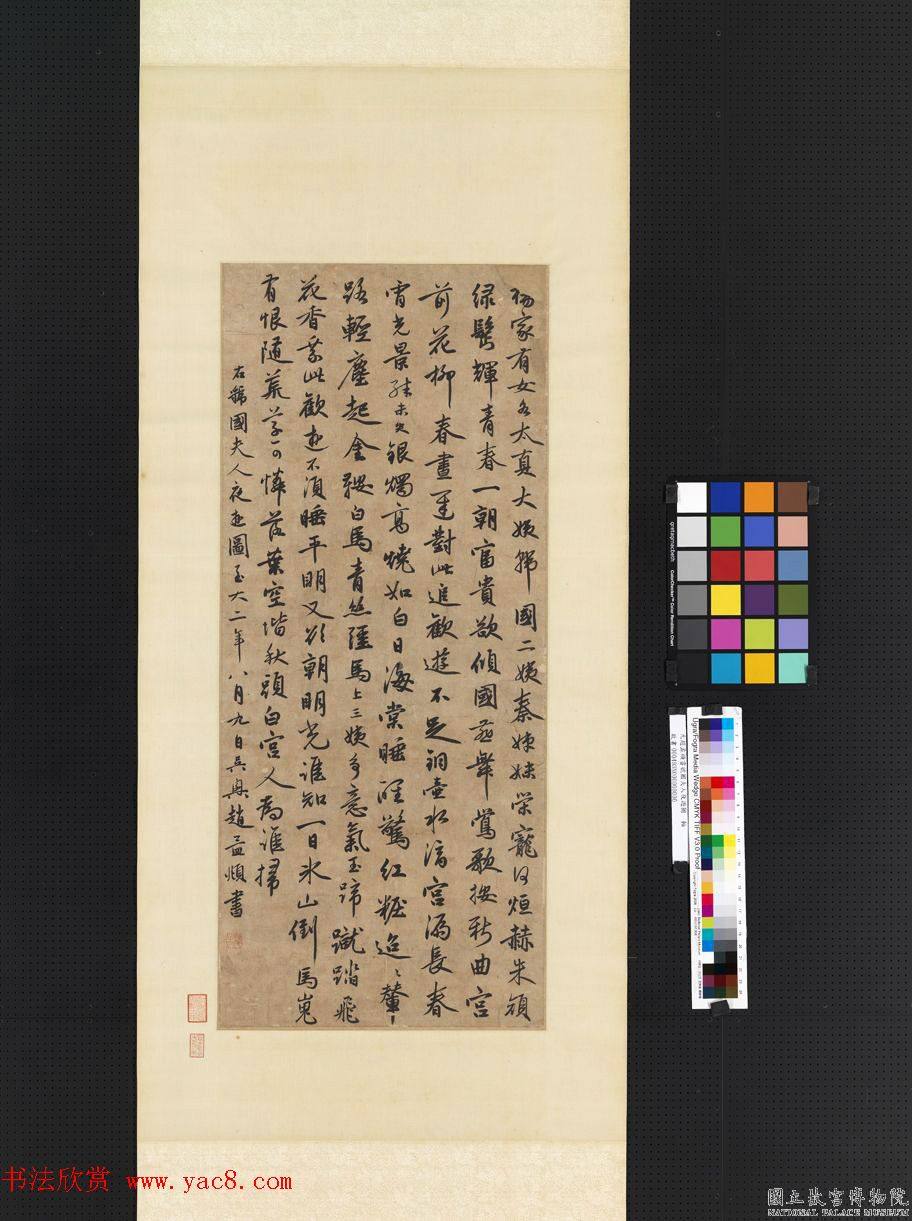 楊家有女名太真大姨虢國二姨秦姊妹榮寵何烜赫朱顏
緑鬢輝青春一朝富貴欲傾國燕舞鶯歌按新曲宮
前花柳春晝遲對此追歡遊不足銅壺水滴宮漏長春
宵光景殊未央銀燭高燒如白日海棠睡醒驚紅粧迢迢輦
路輕塵起金鞍白馬青絲韁馬上三姨多意氣玉蹄蹴踏飛
花香乘此歡遊不須睡平明又欲朝明光誰知一日氷山倒馬嵬
有恨隨荒草可憐落葉空堦秋頭白宮人為誰掃
右虢國夫人夜遊圖至大二年八月九日吳興趙孟頫書
gretagmacbeth
ColorChecker Color Rendition Chart
Ugra/Fogra Media Wedge CMYK TIFF V3.0 Proof
书法欣赏 www.yac8.com
國立故宮博物院
NATIONAL PALACE MUSEUM